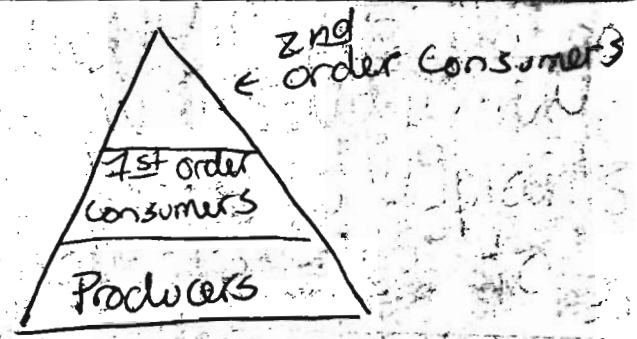 2nd
← order consumers
1st order
consumers
Producers